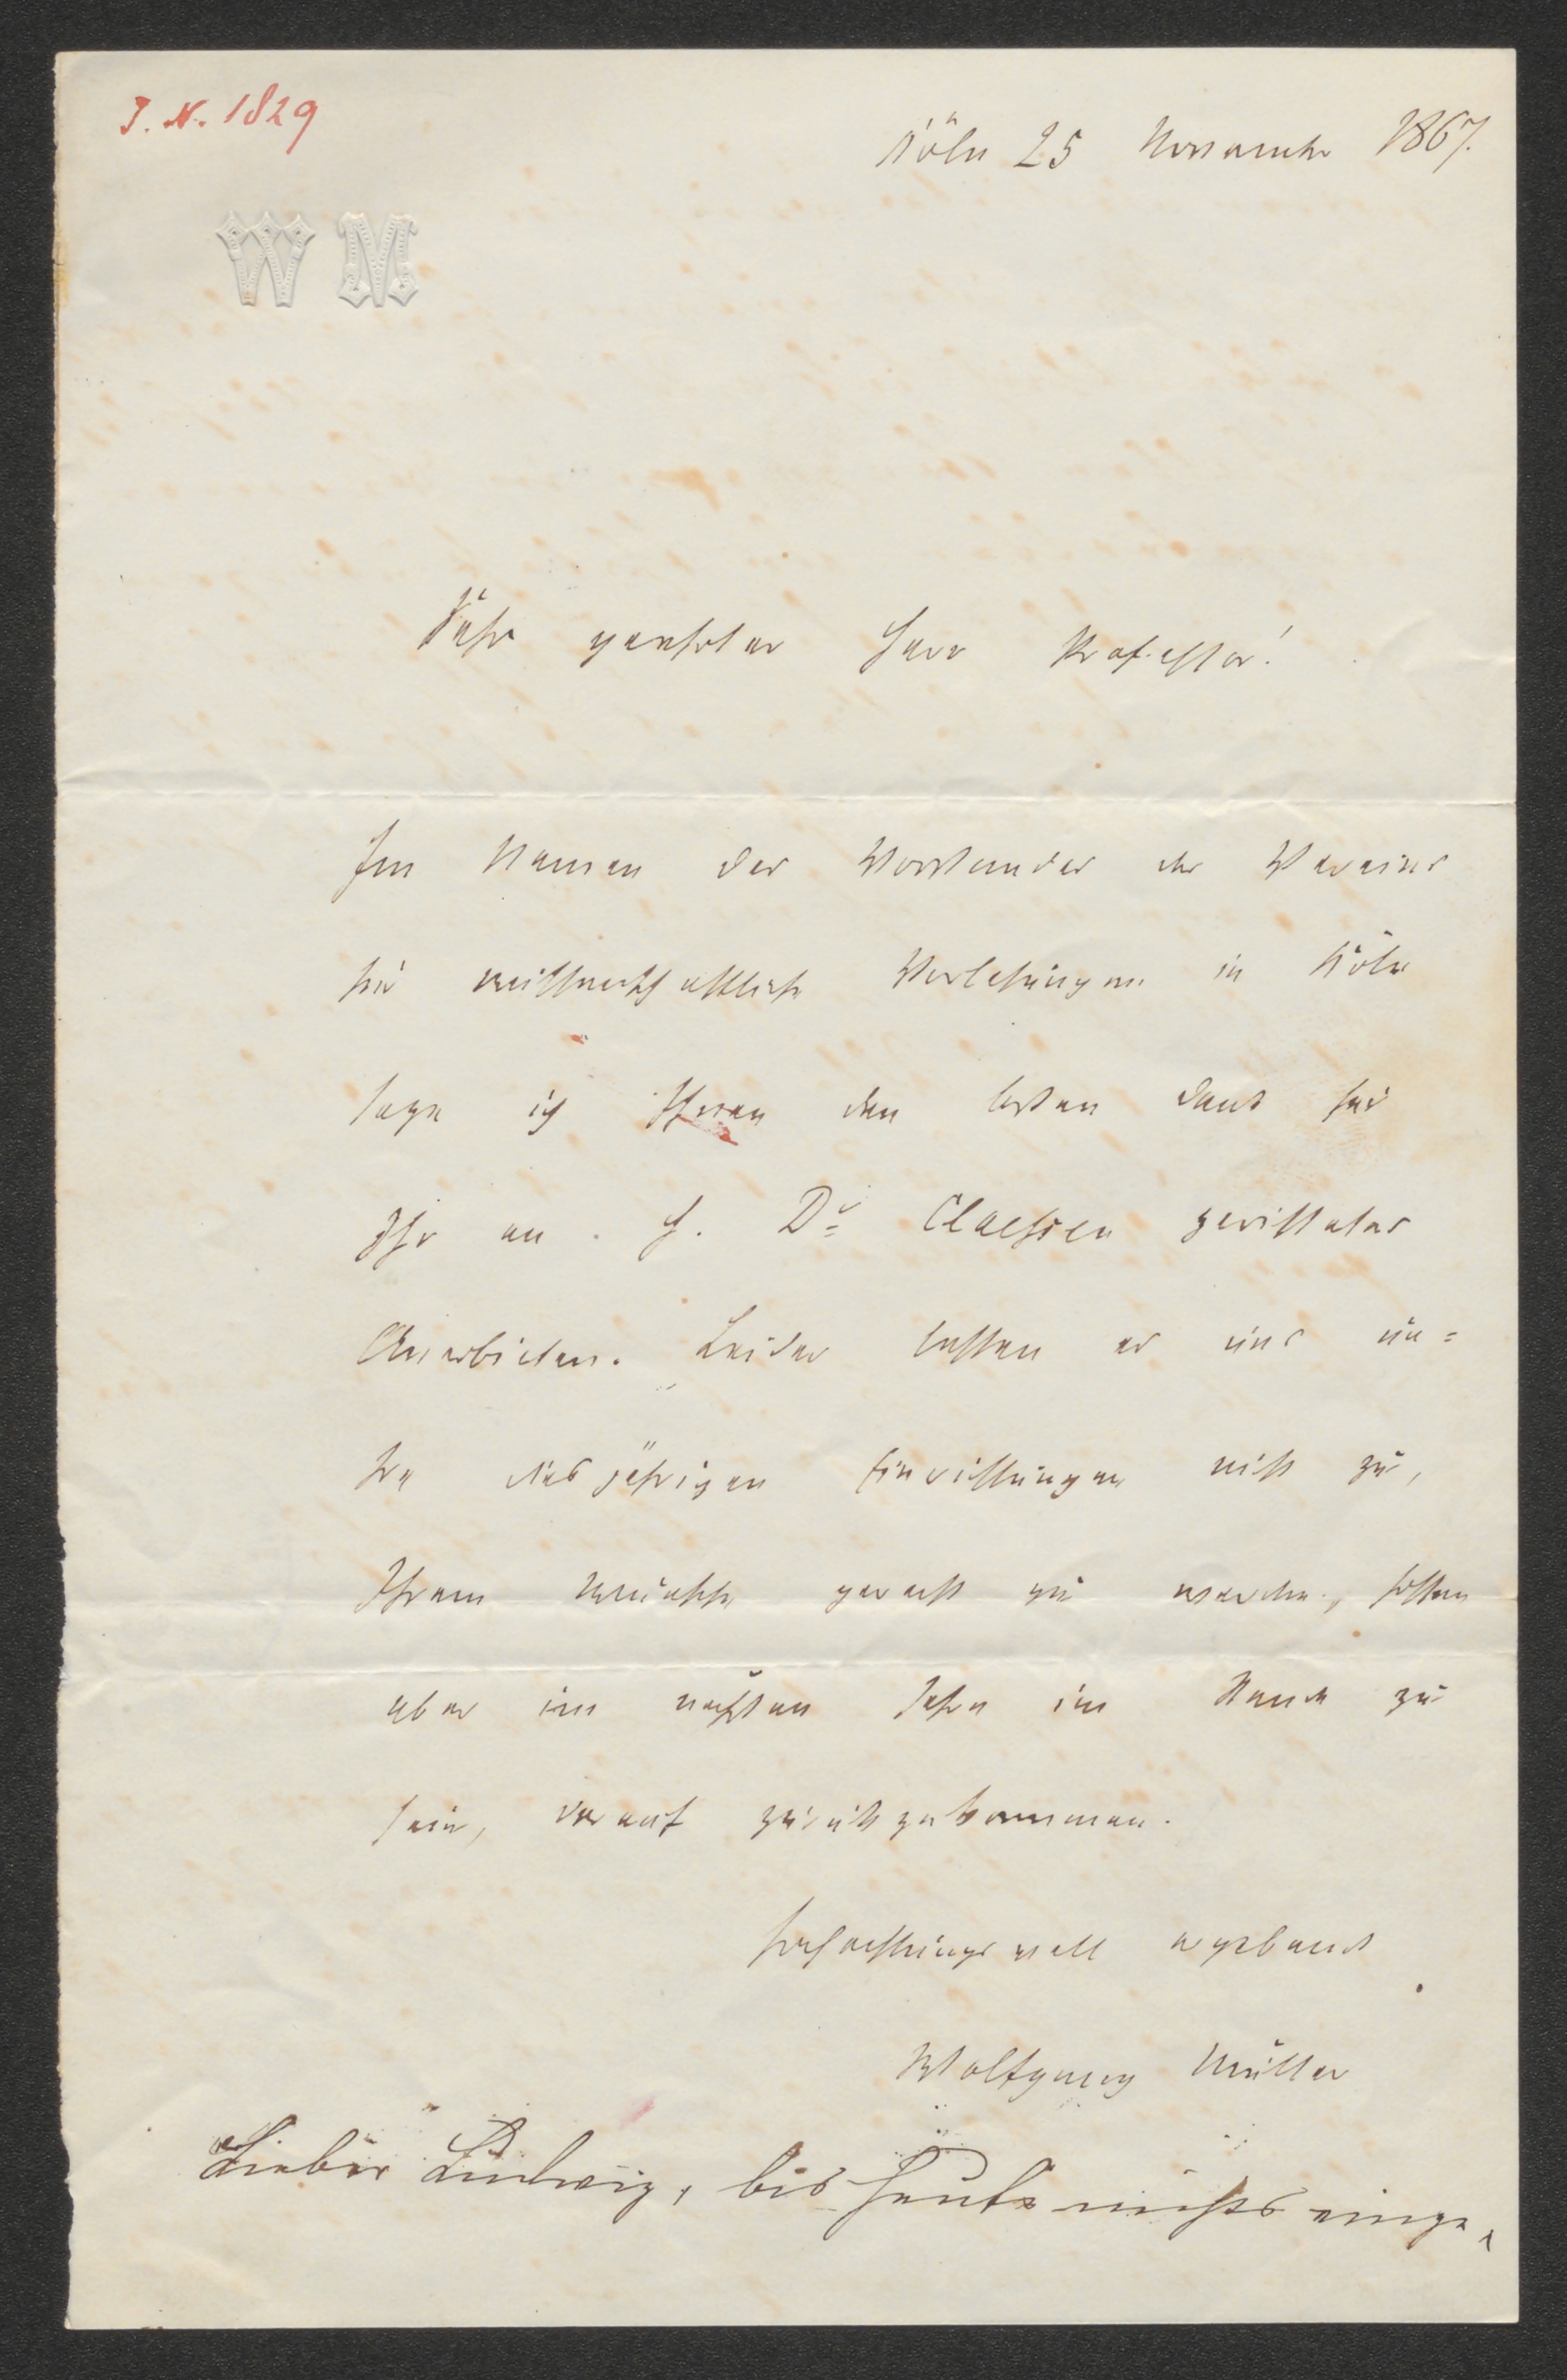 J. N. 1829
Köln 25 November 1867.
W M
Sehr geehrter Herr Professor!
Im Namen des Vorstandes des Vereins
für wissenschaftliche Vorlesungen in Köln
sage ich Ihnen den besten Dank für
Ihr an H. Dr Claessen gerichtetes
Anerbieten. Leider lassen es uns un=
sre diesjährigen Einrichtungen nicht zu,
Ihrem Wunsche gerecht zu werden, hoffen
aber im nächsten Jahre im Stande zu
sein, darauf zurückzukommen.
Hochachtungsvoll ergebenst
Wolfgang Müller
Lieber Ludwig, bis heute nichts einge